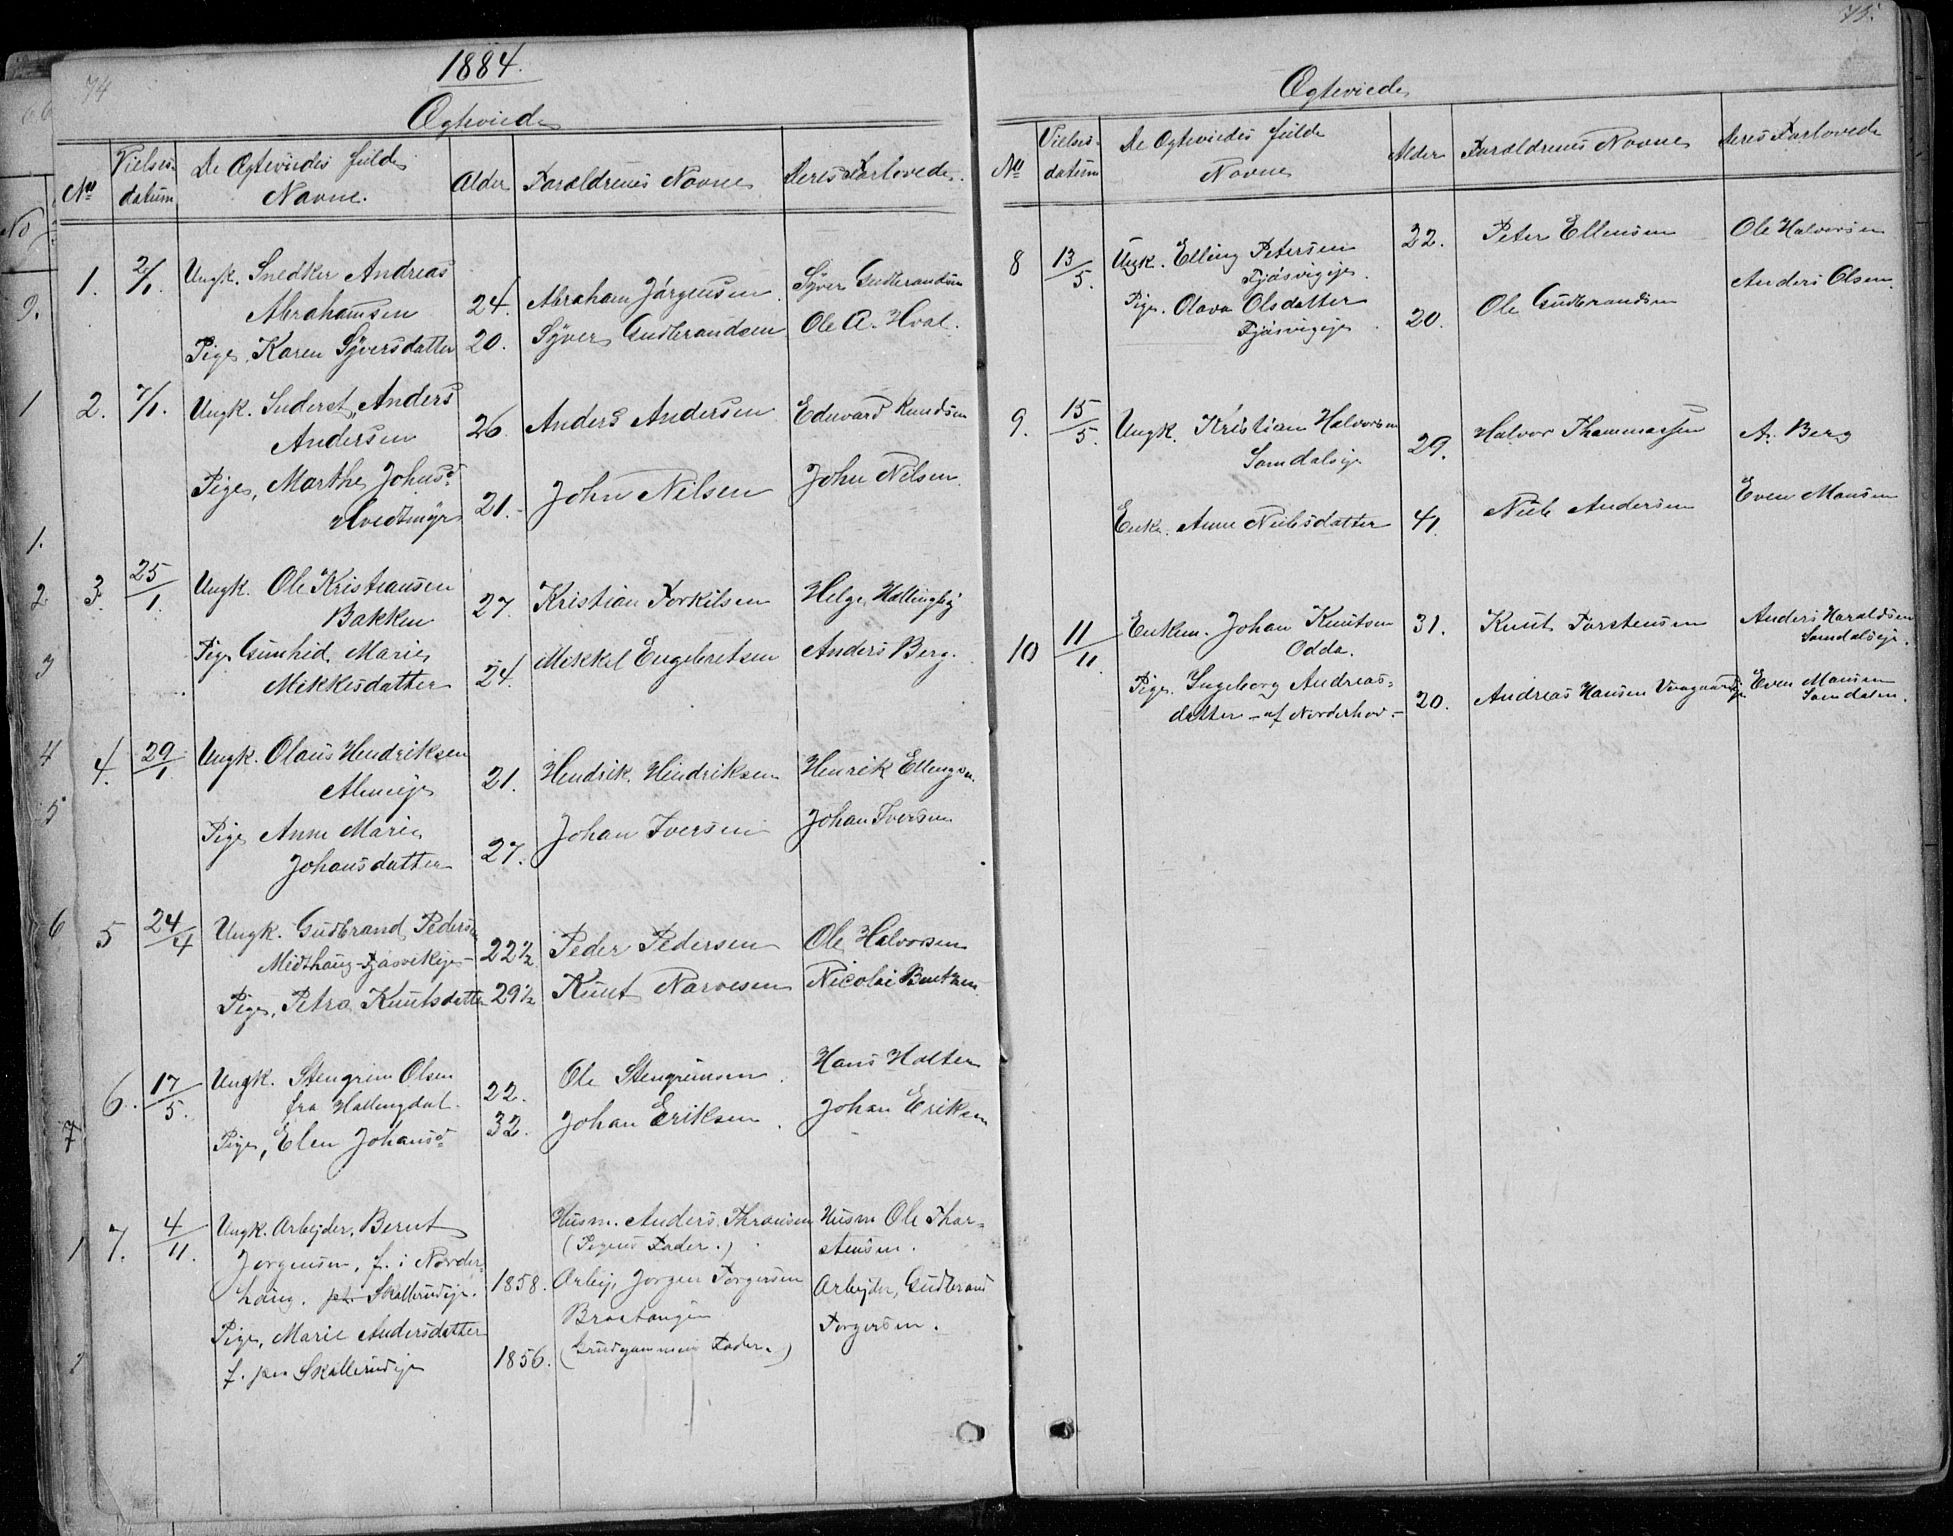 74
1884.
Ægteviede
No
Vielses-
datum
De Ægteviedes fulde
Navne.
Alder
Forældrenes Navne
Deres Forlovede.
1. 2/1. Ungk. Snedker Andreas
Abrahamsen 24. Abraham Jörgensen. Syver Gudbrandsen
Pige, Karen Syversdatter 20. Syver Gudbrandsen Ole A. Hval.
2. 7/1. Ungk. Anders
Andersen 26. Anders Andersen Edevard Knudsen
Pige, Marthe Johnsd.
21. John Nilsen John Nilsen.
3. 25/1. Ungk. Ole Kristiansen
Bakken 27. Kristian Torkilsen Helge Hallingby
Pige Gunhild Marie
Mikkelsdatter 24. Mikkel Engebretsen Anders Berg.
4. 29/1. Ungk. Olaus Hendriksen
Almeie 21. Hendrik Hendriksen Henrik Ellingsen
Pige Anne Marie
Johansdatter 27. Johan Iversen Johan Iversen
5 24/4 Ungk. Gudbrand Pedersen
Midthaug - Tjäsvikeje - 22 1/2 Peder Pedersen Ole Halvorsen
Pige, Petra Knutsdatter 29 1/2 Knut Narvesen Nicolai Bentzen
6. 17/5. Ungk. Stengrim Olsen
fra Hallingdal. 22. Ole Stengrimsen. Hans Holten
Pige, Elen Johansd. 32. Johan Eriksen. Johan Eriksen
7. 4/11. Ungk. Arbejder, Bernt
Jorgensen, f. i Norder-
haug. pt. Skallerudeje. 1858.
Pige, Marie Andersdatter
f. paa Skallerudeje 1856.
Husm. Anders Thronsen
(Pigens Fader.)
Arbej. Jorgen Torgersen
Braatangen
(Brudgommens Fader.)
Husm Ole Thor-
stensen.
Arbejder, Gudbrand
Torgersen.
75.
Ægteviede
No
Vielses-
datum
De Ægteviedes fulde
Navne
Alder
Forældrenes Navne
Deres Forlovede
8 13/5. Ungk. Elling Petersen
Tjäsvigeje. 22. Peter Ellensen Ole Halvorsen
Pige. Olava Olsdatter
Tjäsvigeje. 20. Ole Gudbrandsen Anders Olsen.
9. 15/5. Ungk. Kristian Halvorsen
Somdalseje 29. Halvor Thommasen A. Berg
Enke. Anne Nielsdatter 41. Niels Andersen Even Monsen
10 11/11 Enkem. Johan Knutsen
Odda. 31. Knut Torstensen Anders Haraldsen
Somdalseje.
Pige. Ingeborg Andreas-
datter - af Norderhov. - 20. Andreas Hansen Even Monsen
Somdalen.